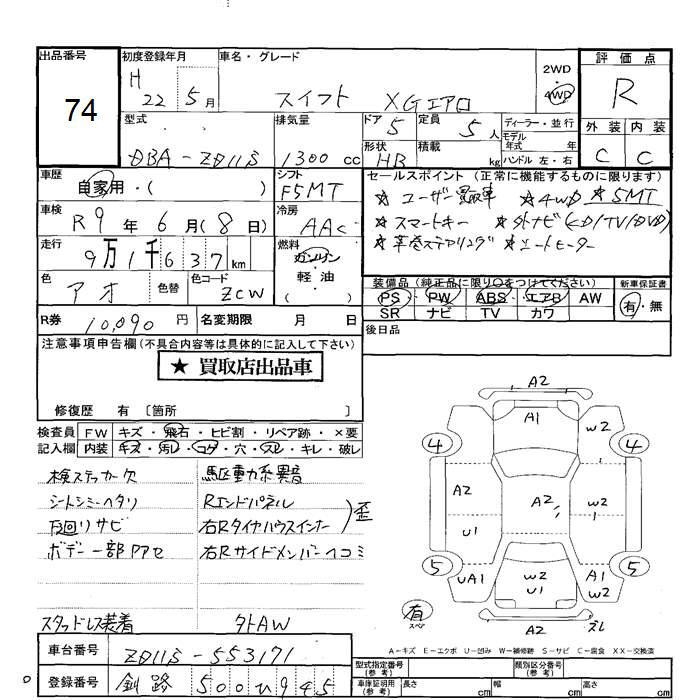 出品番号 初度登録年月 車名・グレード 評価点
74
H 22年 5月
スイフト XGエアロ
2WD・4WD
R
外装 内装
C C
型式 排気量 ドア 定員 ディーラー・並行
DBA-ZD11S 1300cc 5 5人 モデル年式 年
形状 積載 ハンドル 左・右
HB kg
車歴 シフト セールスポイント(正常に機能するものに限ります)
自家用・( ) F5MT
★ユーザー買取車 ★4WD ★5MT
★スマートキー ★外ナビ(CD/TV/DVD)
★革巻ステアリング ★シートヒーター
車検 冷房
R9年 6月(8日) AAC
走行 燃料
9万1千637km ガソリン・軽油( )
色 色替 色コード
アオ ZCW
装備品(純正品に限り○をつけてください) 新車保証書
PS PW ABS エアB AW 有・無
SR ナビ TV カワ
R券 10,090円 名変期限 月 日
後日品
注意事項申告欄(不具合内容等は具体的に記入して下さい)
★買取店出品車
修復歴 有〔箇所 〕
検査員記入欄 FW キズ・飛石・ヒビ割・リペア跡・×要
内装 キズ・汚レ・コゲ・穴・スレ・キレ・破レ
検ステッカー欠 駆動力系異音
シートシミヘタリ Rエンドパネル
下回リサビ 右Rタイヤハウスインナー 歪
ボデー一部アアセ 右Rサイドメンバーヘコミ
スタッドレス装着 外AW
A2
A1
W2
4 4
A2 A2 W2
U1
5 5
UA1 W2 U1 A1 W2
有 スペア
A2 ズレ
A-キズ E-エクボ U-凹み W-補修跡 S-サビ C-腐食 XX-交換済
車台番号 ZD11S-553171
登録番号 釧路 500ひ945
型式指定番号(参考) 類別区分番号(参考)
車庫証明用(参考) 長さ cm 幅 cm 高さ cm